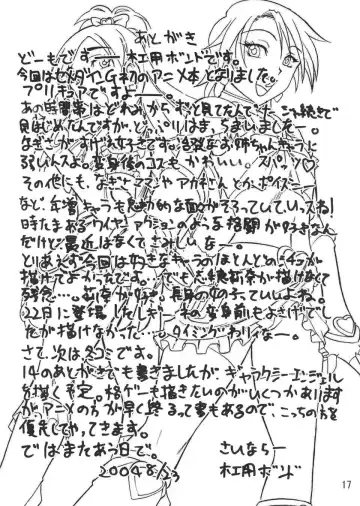 あとがき
どーもです 木工用ボンドです。
今回はセメダインG初のアニメ本となりました。
プリキュアですよー。
見はじめたんですが、どっぷりはまっちまいましたー。
なぎさがすげー好きです。
弱いんスよ。変身後のコスもかわいい。スパッツ♡
その他にも、なぎさママンやアカネさんとかポイズニー
など、年増キャラも魅力的な面々がそろってていいっスね!
時たまあるワイヤーアクションのような格闘が好きなん
だけど最近はなくてさみしいなー。
とりあえず今回は好きなキャラのほとんどのエッチが
描けてよかったです。でも志穂莉奈が描けなくて
残念…。莉奈が好き。長身の女の子っていいよね。
22日に登場したレギーネの変身前もよさげでし
たが描けなかった…。タイミングわりぃなー。
さて、次は冬コミです。
14のあとがきでも書きましたが、ギャラクシーエンジェル
を描く予定。格ゲーも描きたいのがいくつかあります
が、アニメの方が早く終るって事もあるので、こっちの方を
優先してやってきます。
ではまたあう日で。 さいならー
2004 8/23 木工用ボンド
17